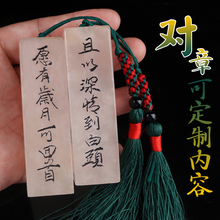 对章可定制内容
且以深情到白頭
愿有歲月可回首